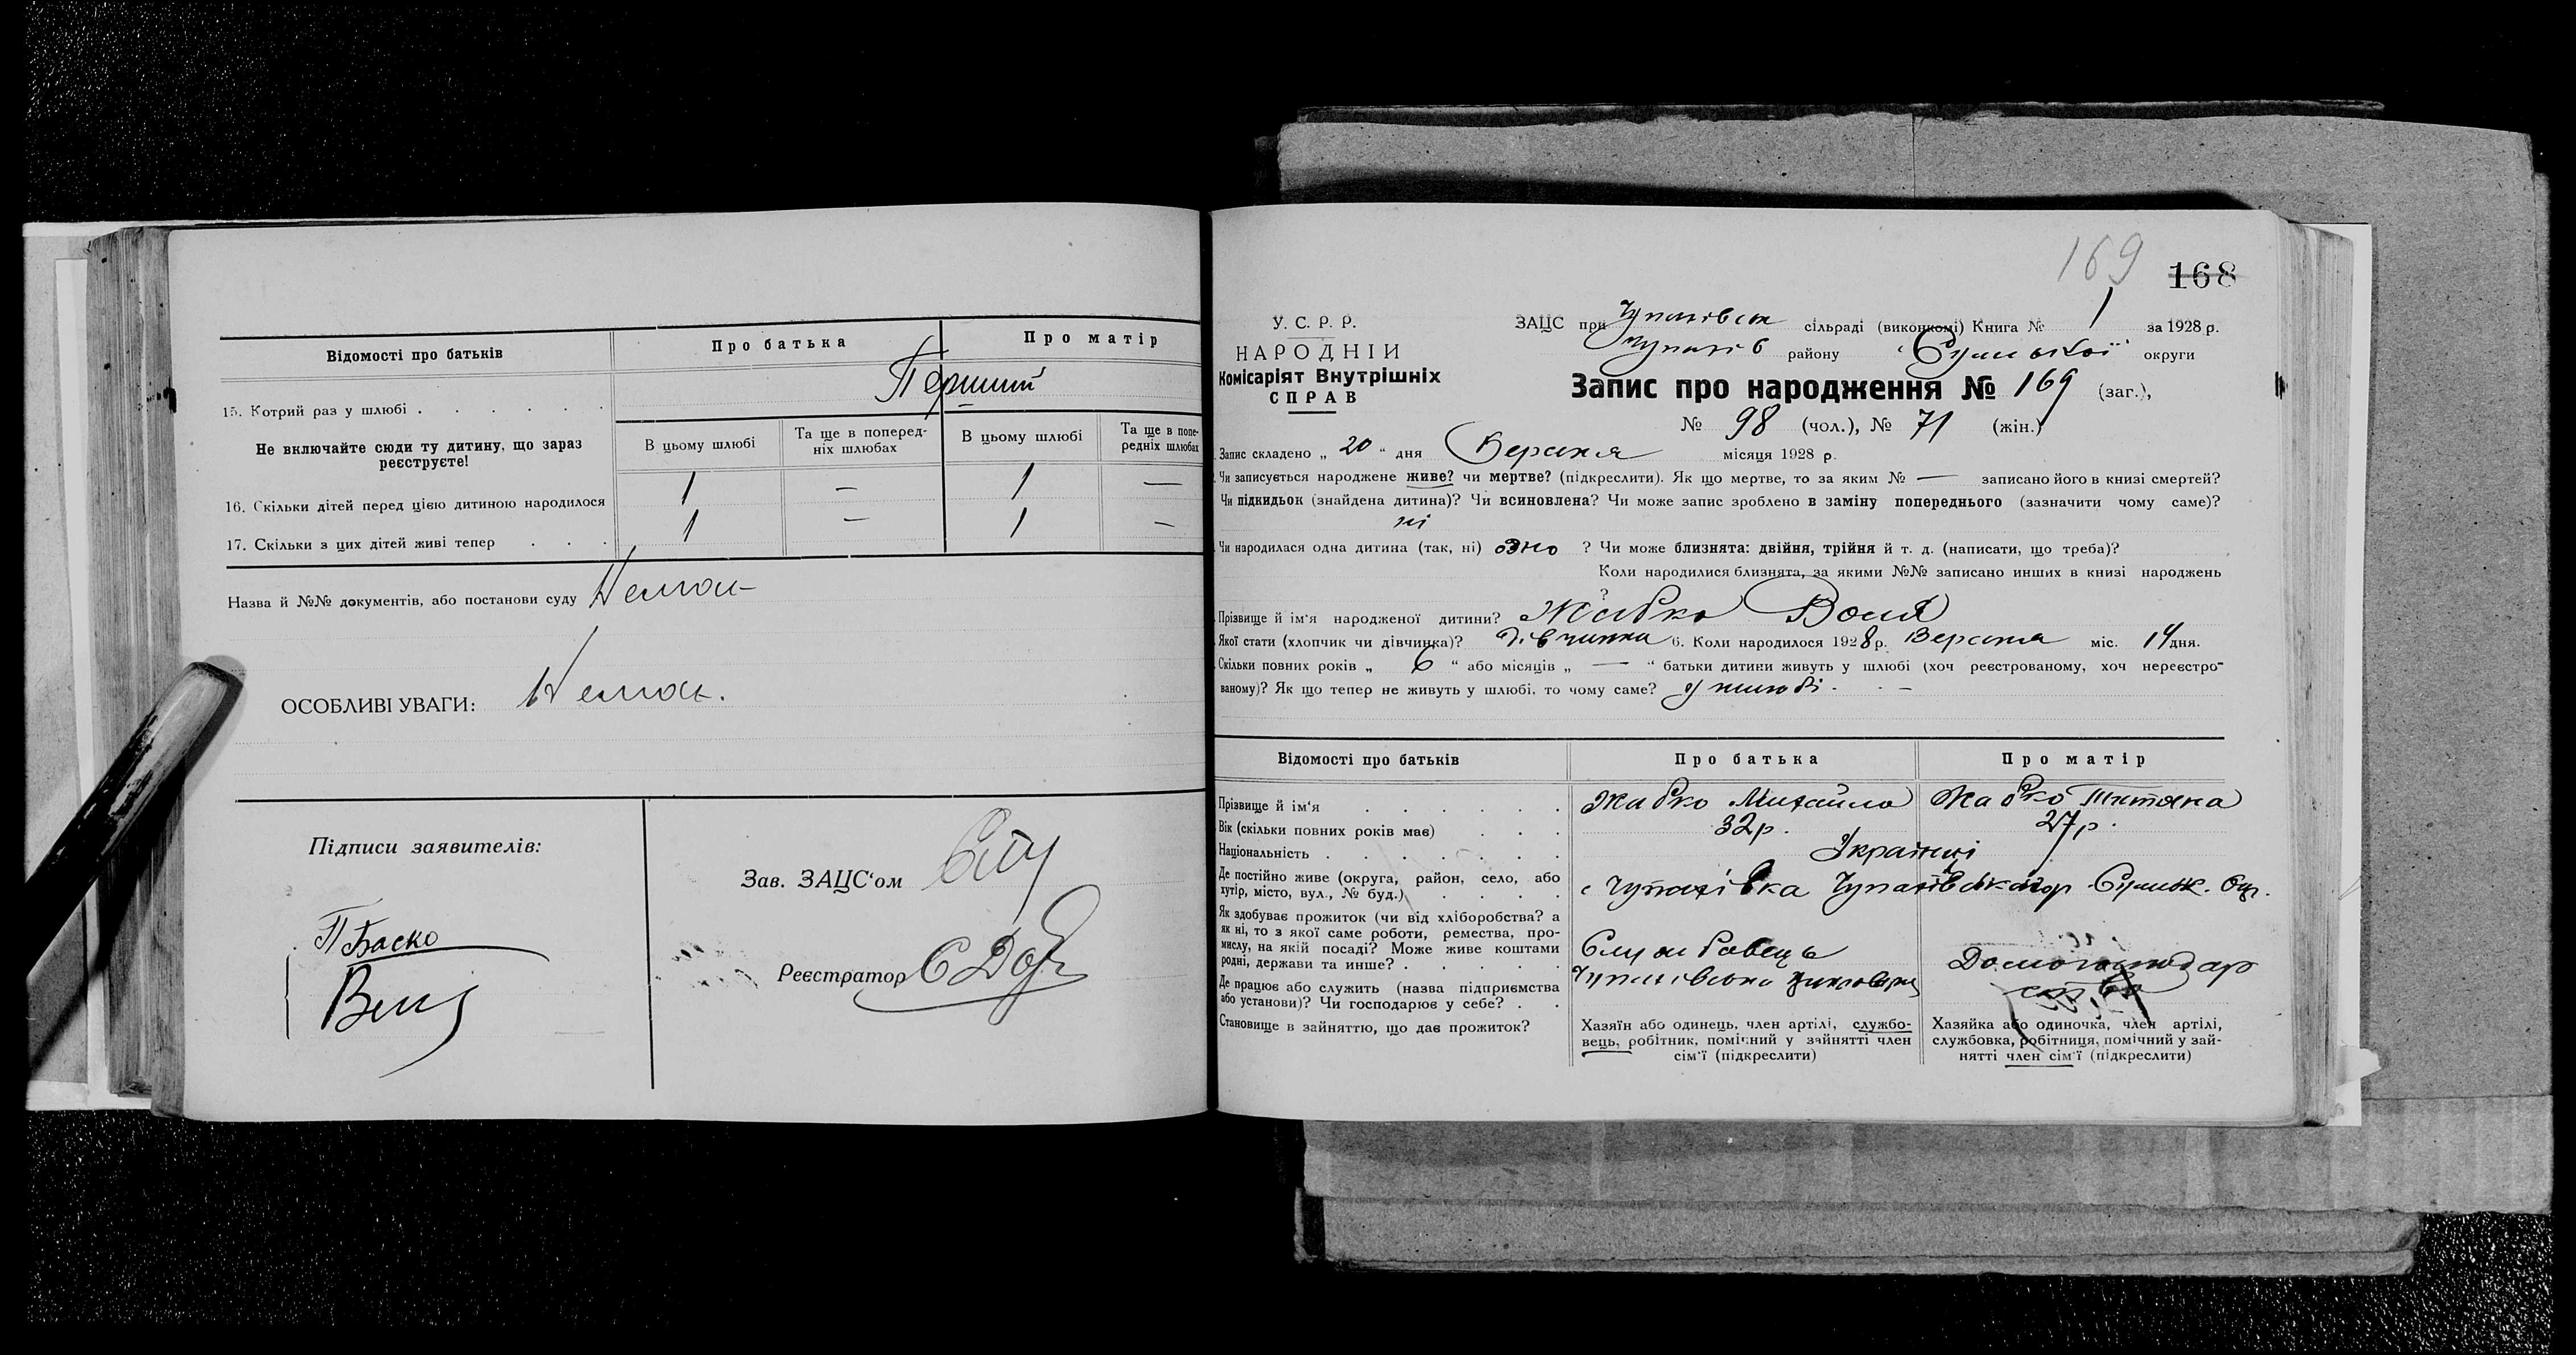 Відомості про батьків Про батька Про матір
15. Котрий раз у шлюбі . . . . . . Перший
Не включайте сюди ту дитину, що зараз реєструєте!
В цьому шлюбі Та ще в поперед-ніх шлюбах В цьому шлюбі Та ще в попе-редніх шлюбах
16. Скільки дітей перед цією дитиною народилося 1 — 1 —
17. Скільки з цих дітей живі тепер . . . 1 — 1 —
Назва й №№ документів, або постанови суду Немає
ОСОБЛИВІ УВАГИ: Немає.
Підписи заявителів:
П Баско
Зав. ЗАЦС‘ом
Реєстратор
169 168
У. С. Р. Р.
НАРОДНІЙ
Комісаріят Внутрішніх
СПРАВ
ЗАЦС при Чупахівськ сільраді (виконкомі) Книга № 1 за 1928 р.
Чупахів району Сумської округи
Запис про народження № 169 (заг.),
№ 98 (чол.), № 71 (жін.)
Запис складено „ 20 “ дня Вересня місяця 1928 р.
Чи записується народжене живе? чи мертве? (підкреслити). Як що мертве, то за яким № — записано його в книзі смертей?
Чи підкидьок (знайдена дитина)? Чи всиновлена? Чи може запис зроблено в заміну попереднього (зазначити чому саме)?
ні
Чи народилася одна дитина (так, ні) одно ? Чи може близнята: двійня, трійня й т. д. (написати, що треба)?
Коли народилися близнята, за якими №№ записано инших в книзі народжень
?
Прізвище й ім‘я народженої дитини? Жабко Воля
Якої стати (хлопчик чи дівчинка)? дівчинка 6. Коли народилося 1928 р. Вересня міс. 14 дня.
Скільки повних років „ 6 “ або місяців „ — “ батьки дитини живуть у шлюбі (хоч реєстрованому, хоч нереєстро-
ваному)? Як що тепер не живуть у шлюбі, то чому саме? у шлюбі . . —
Відомості про батьків Про батька Про матір
Прізвище й ім‘я . . . . . . Жабко Михайло Жабко Титяна
Вік (скільки повних років має) . . . 32р. 27р.
Національність . . . . . . . Українці
Де постійно живе (округа, район, село, або
хутір, місто, вул., № буд.) . . . . с Чупахівка Чупахівськ Сумськ. Окр.
Як здобуває прожиток (чи від хліборобства? а
як ні, то з якої саме роботи, ремества, про-
мислу, на якій посаді? Може живе коштами
родні, держави та инше? . . . . . Службовець Домогосподар
Де працює або служить (назва підприємства
або установи)? Чи господарює у себе? . . Чупахівська цукроварня
Становище в зайняттю, що дає прожиток?
Хазяїн або одинець, член артілі, службо-
вець, робітник, помічний у зайнятті член
сім‘ї (підкреслити)
Хазяйка або одиночка, член артілі,
службовка, робітниця, помічний у зай-
нятті член сім‘ї (підкреслити)